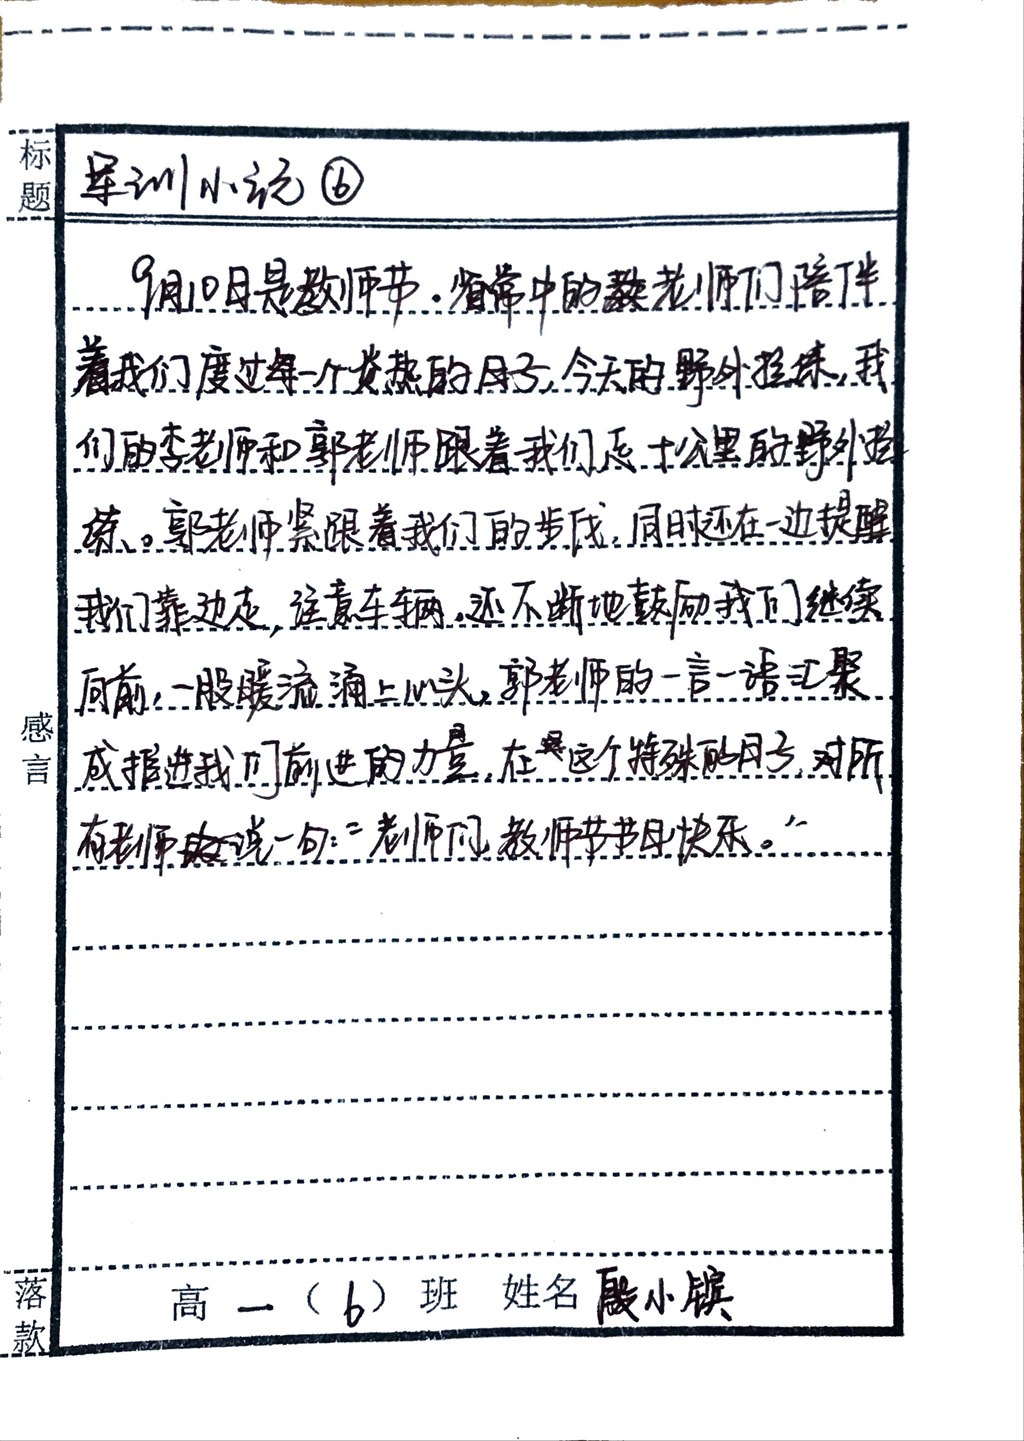 标题
军训小记⑥
9月10日是教师节。省常中的教老师们陪伴
着我们度过每一个炎热的日子,今天的野外拉练,我
们的李老师和郭老师跟着我们走十公里的野外拉
练。郭老师紧跟着我们的步伐,同时还在一边提醒
我们靠边走,注意车辆。还不断地鼓励我们继续
向前,一股暖流涌上心头。郭老师的一言一语汇聚
成推进我们前进的力量。在这个特殊的日子,对所
有老师说一句:“老师们,教师节节日快乐。”
感言
落款
高一(6)班 姓名 殷小镔